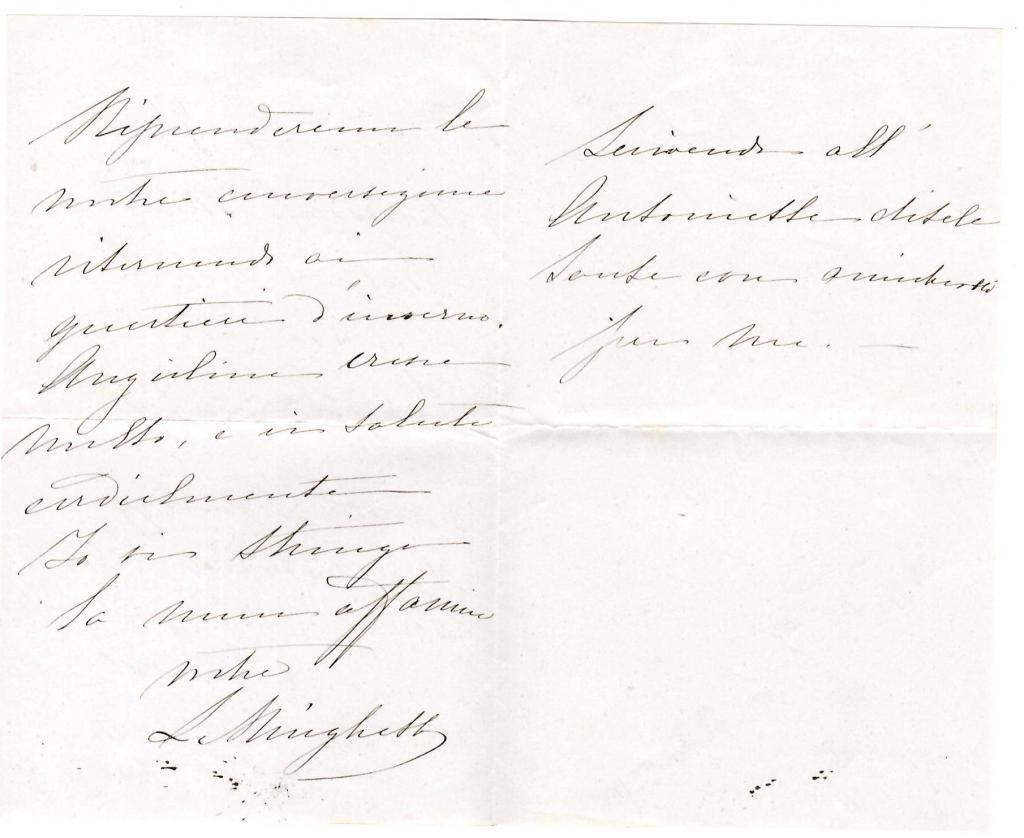 Riprenderemo le
nostre conversazione
ritornando ai
quartieri d'inverno.
Angiolina cresce
molto, e vi saluta
cordialmente
Io vi stringo
la mano affama
vostra
L Minghetti
Scrivendo all'
Antonietta ditele
tante cose amichevoli
per me. —